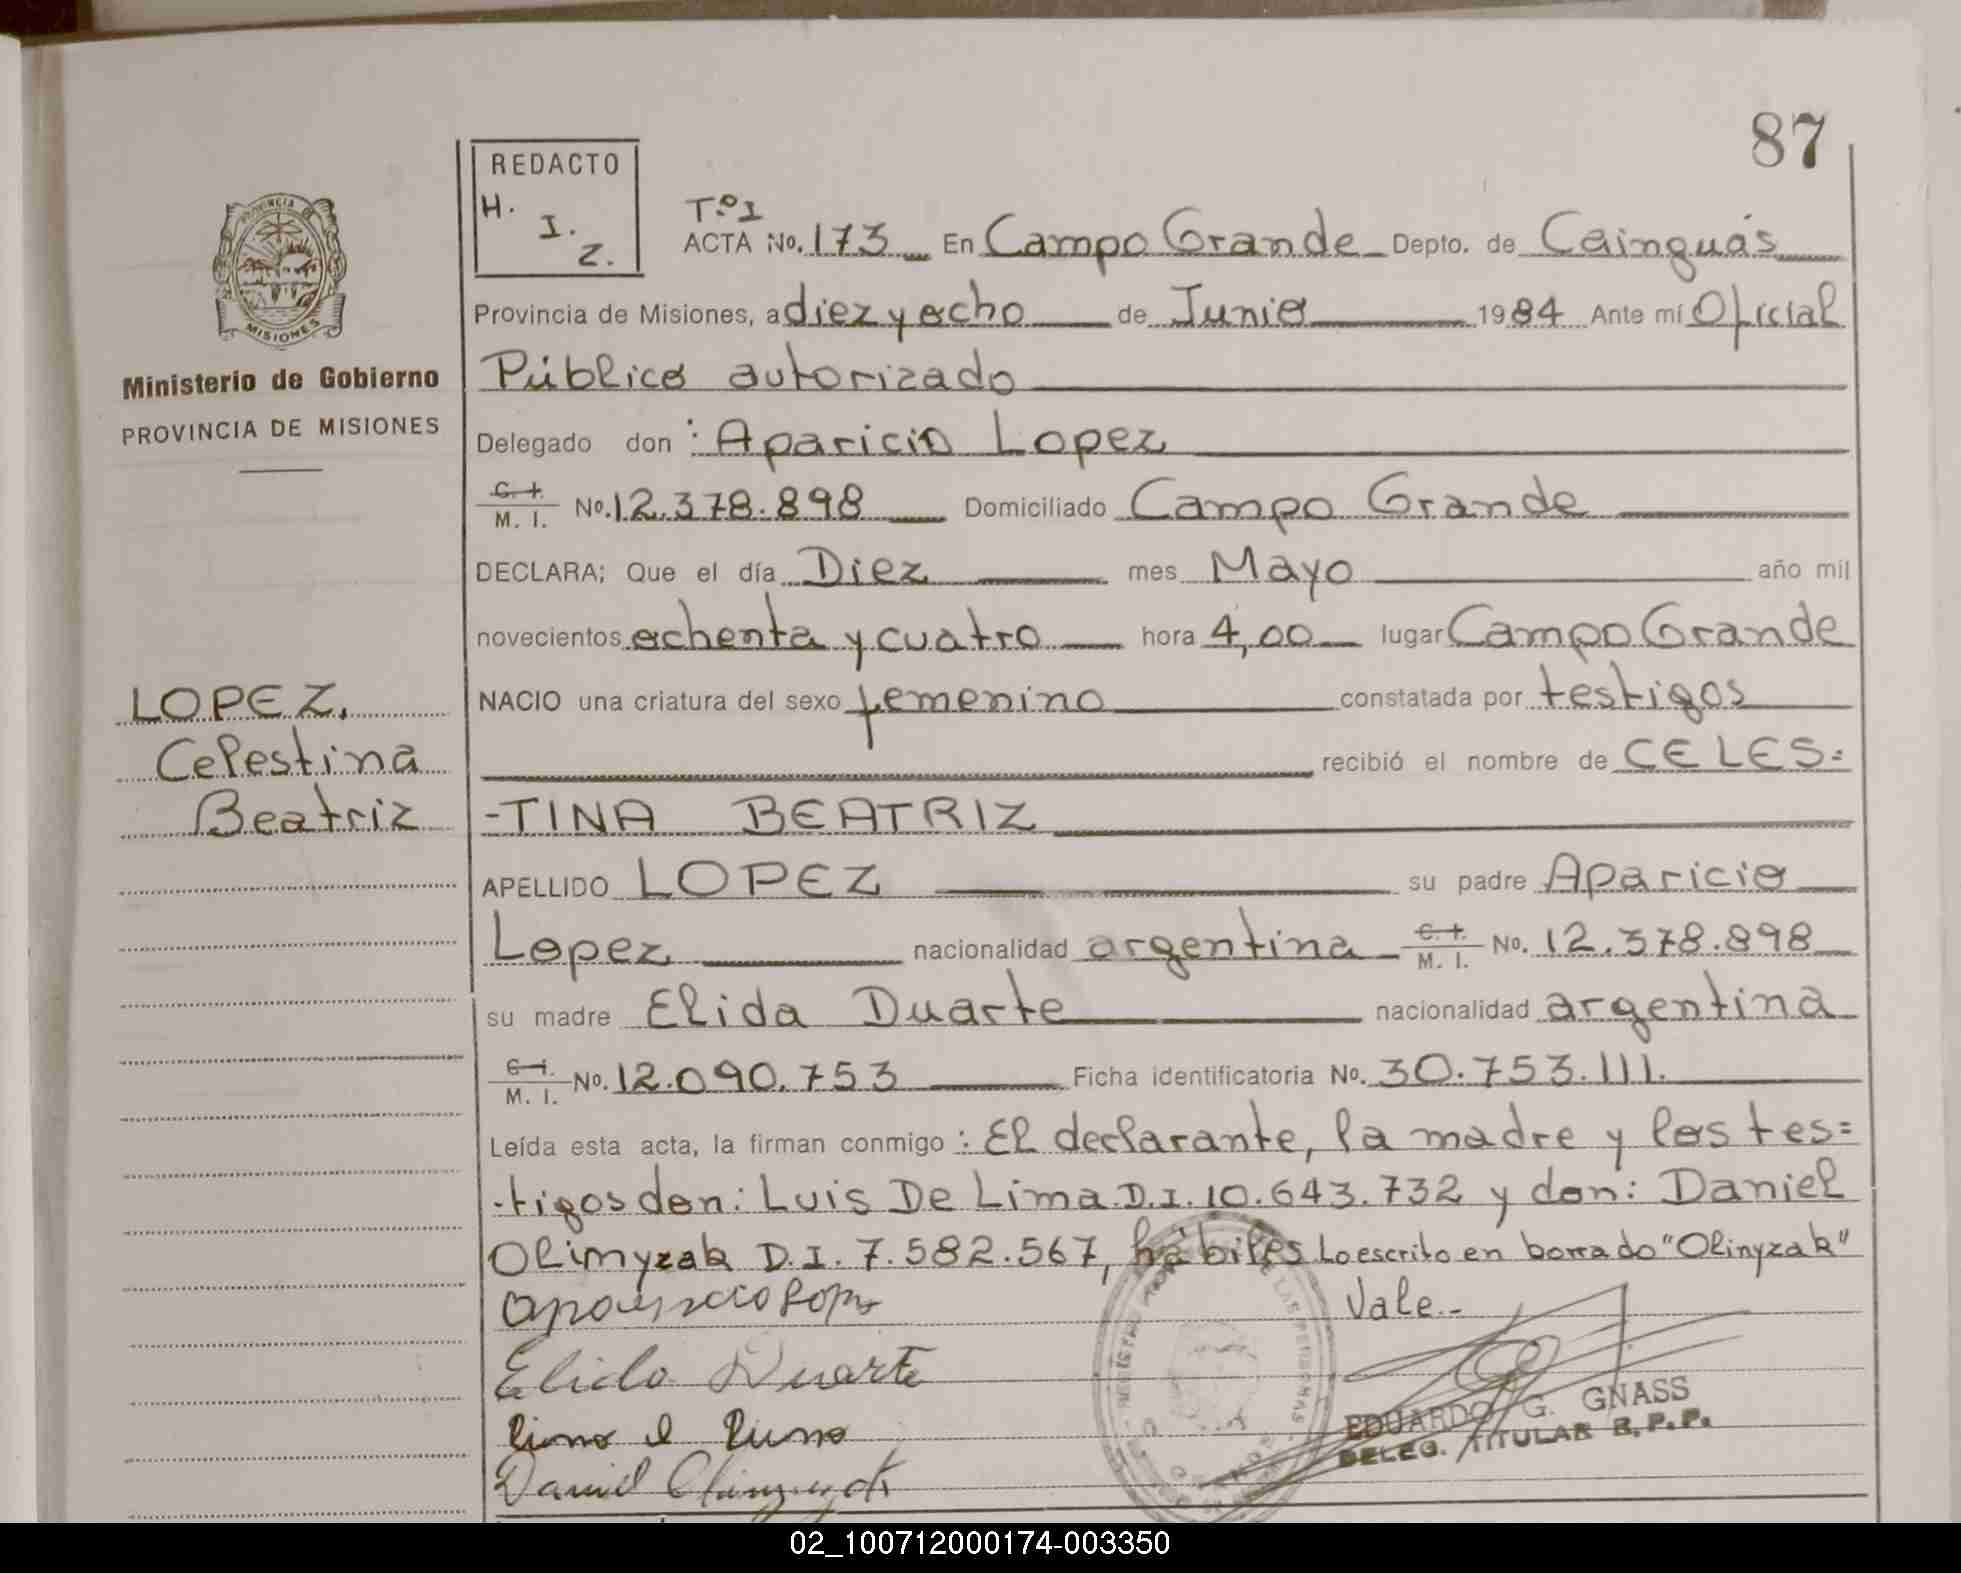 87
REDACTO
H. I. Z.
PROVINCIA DE
MISIONES
Ministerio de Gobierno
PROVINCIA DE MISIONES
T.º I
ACTA No. 173 En Campo Grande Depto. de Cainguás
Provincia de Misiones, a diez y ocho de Junio 1984 Ante mí Oficial
Público autorizado
Delegado don : Aparicio Lopez
C. I. M. I. No. 12.378.898 Domiciliado Campo Grande
DECLARA; Que el día Diez mes Mayo año mil
novecientos ochenta y cuatro hora 4,00 lugar Campo Grande
LOPEZ,
Celestina
Beatriz
NACIO una criatura del sexo femenino constatada por testigos
recibió el nombre de CELES=
-TINA BEATRIZ
APELLIDO LOPEZ su padre Aparicio
Lopez nacionalidad argentina C. I. M. I. No. 12.378.898
su madre Elida Duarte nacionalidad argentina
C. I. M. I. No. 12.090.753 Ficha identificatoria No. 30.753.111.
Leída esta acta, la firman conmigo : El declarante, la madre y los tes=
-tigos don: Luis De Lima D.I. 10.643.732 y don: Daniel
Olinyzak D.I. 7.582.567, hábiles Lo escrito en borrado "Olinyzak"
Vale.-
Elida Duarte
Daniel
EDUARDO G. GNASS
DELEG. TITULAR R.P.P.
02_100712000174-003350